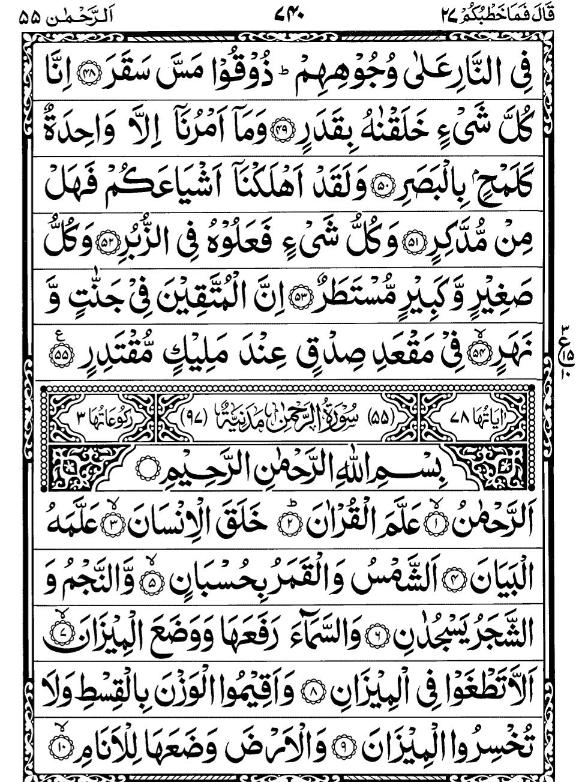 قَالَ فَمَا خَطْبُكُمْ ٢٧ ٧٤٠ اَلرَّحْمٰن ٥٥
فِى النَّارِ عَلٰى وُجُوْهِهِمْ ؕ ذُوْقُوْا مَسَّ سَقَرَ ﴿۴۸﴾ اِنَّا
كُلَّ شَىْءٍ خَلَقْنٰهُ بِقَدَرٍ ﴿۴۹﴾ وَمَاۤ اَمْرُنَاۤ اِلَّا وَاحِدَةٌ
كَلَمْحٍۭ بِالْبَصَرِ ﴿۵۰﴾ وَلَقَدْ اَهْلَكْنَاۤ اَشْيَاعَكُمْ فَهَلْ
مِنْ مُّدَّكِرٍ ﴿۵۱﴾ وَكُلُّ شَىْءٍ فَعَلُوْهُ فِى الزُّبُرِ ﴿۵۲﴾ وَكُلُّ
صَغِيْرٍ وَّكَبِيْرٍ مُّسْتَطَرٌ ﴿۵۳﴾ اِنَّ الْمُتَّقِيْنَ فِىْ جَنّٰتٍ وَّ
نَهَرٍ ۙ﴿۵۴﴾ فِىْ مَقْعَدِ صِدْقٍ عِنْدَ مَلِيْكٍ مُّقْتَدِرٍ ﴿۵۵﴾ ع
٣ ع ١٥ ١٠
اٰيَاتُهَا ٧٨ (٥٥) سُوْرَةُ الرَّحْمٰنِ مَدَنِيَّةٌ (٩٧) رُكُوْعَاتُهَا ٣
بِسْمِ اللهِ الرَّحْمٰنِ الرَّحِيْمِ
اَلرَّحْمٰنُ ۙ﴿۱﴾ عَلَّمَ الْقُرْاٰنَ ؕ﴿۲﴾ خَلَقَ الْاِنْسَانَ ۙ﴿۳﴾ عَلَّمَهُ
الْبَيَانَ ﴿۴﴾ اَلشَّمْسُ وَالْقَمَرُ بِحُسْبَانٍ ۙ﴿۵﴾ وَّالنَّجْمُ وَ
الشَّجَرُ يَسْجُدٰنِ ﴿۶﴾ وَالسَّمَآءَ رَفَعَهَا وَوَضَعَ الْمِيْزَانَ ۙ﴿۷﴾
اَلَّا تَطْغَوْا فِى الْمِيْزَانِ ﴿۸﴾ وَاَقِيْمُوا الْوَزْنَ بِالْقِسْطِ وَلَا
تُخْسِرُوا الْمِيْزَانَ ﴿۹﴾ وَالْاَرْضَ وَضَعَهَا لِلْاَنَامِ ۙ﴿۱۰﴾